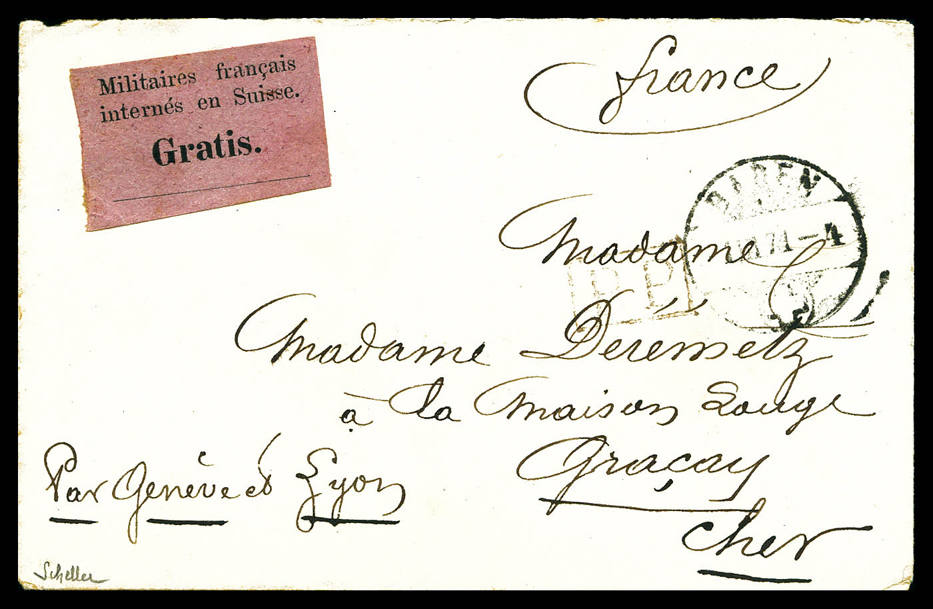 Militaires français
internés en Suisse.
Gratis.
france
BADEN
71-4
P.P.
Madame
Madame Deremetz
à la Maison Rouge
Graçay
Cher
Par Genève et Lyon
Scheller